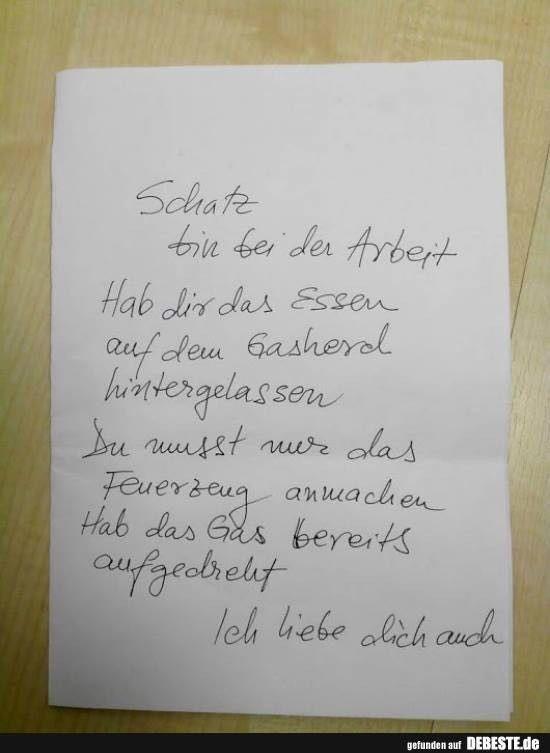 Schatz
bin bei der Arbeit
Hab dir das Essen
auf dem Gasherd
hintergelassen
Du musst nur das
Feuerzeug anmachen
Hab das Gas bereits
aufgedreht
Ich liebe dich auch
gefunden auf DEBESTE.de